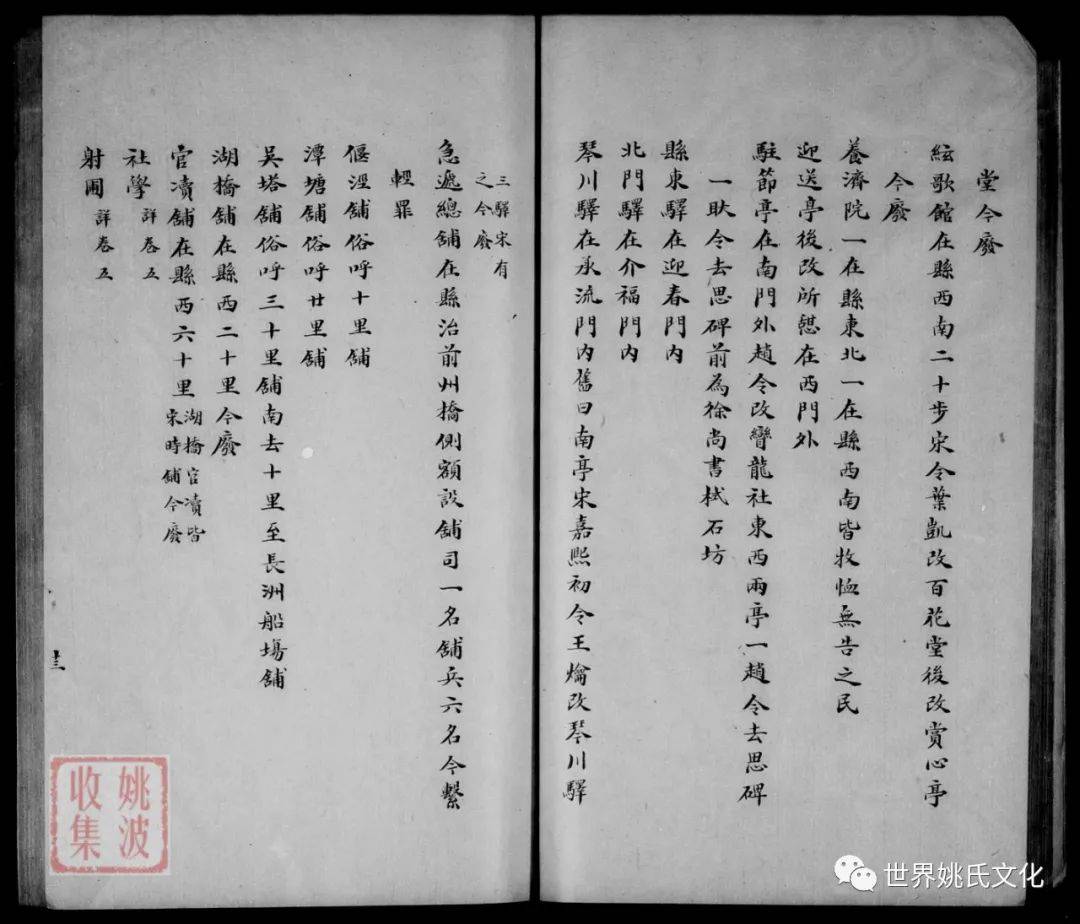 堂今廢
絃歌館在縣西南二十步宋令葉凱改百花堂後改賞心亭
今廢
養濟院一在縣東北一在縣西南皆牧恤無告之民
迎送亭後改所憇在西門外
駐節亭在南門外趙令改彎龍社東西兩亭一趙令去思碑
一耿令去思碑前為徐尚書栻石坊
縣東驛在迎春門內
北門驛在介福門內
琴川驛在承流門內舊曰南亭宋嘉熙初令王爚改琴川驛
三驛宋有
之今廢
急遞總舖在縣治前州橋側額設舖司一名舖兵六名今繫
輕罪
偃涇舖俗呼十里舖
潭塘舖俗呼廿里舖
吳塔舖俗呼三十里舖南去十里至長洲船塲舖
湖橋舖在縣西二十里今廢
官瀆舖在縣西六十里
湖橋官瀆皆
宋時舖今廢
社學 詳卷五
射圃 詳卷五
姚波
收集
世界姚氏文化